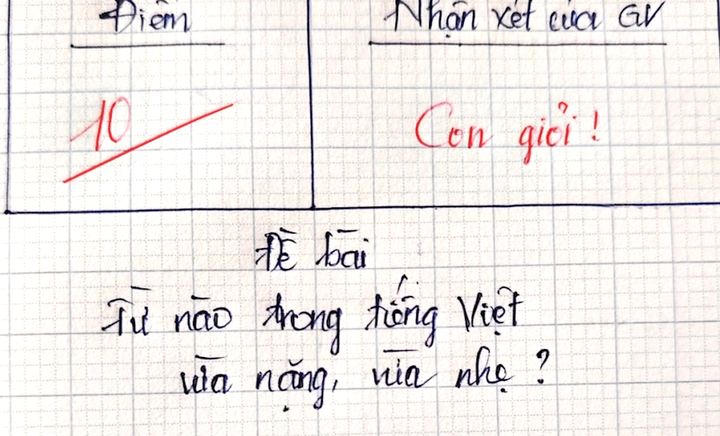 Điểm
Nhận xét của GV
10
Con giỏi!
Đề bài
Từ nào trong tiếng Việt
vừa nặng, vừa nhẹ?